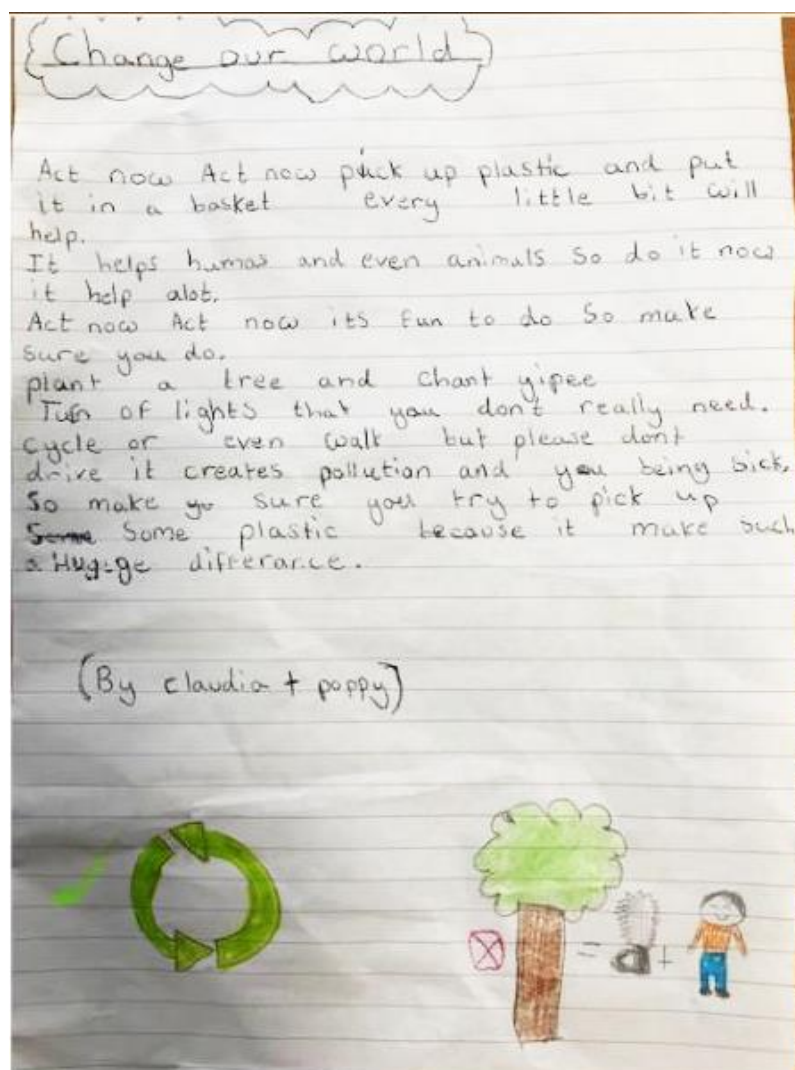 Change our world
Act now Act now pick up plastic and put
it in a basket every little bit will
help.
It helps humas and even animals So do it now
it help alot.
Act now Act now its fun to do So make
sure you do.
plant a tree and chant yipee
Turn of lights that you don't really need.
cycle or even walk but please dont
drive it creates pollution and you being sick.
So make sure you try to pick up
Some plastic because it make such
a Hugege differance.
(By claudia + poppy)
= +